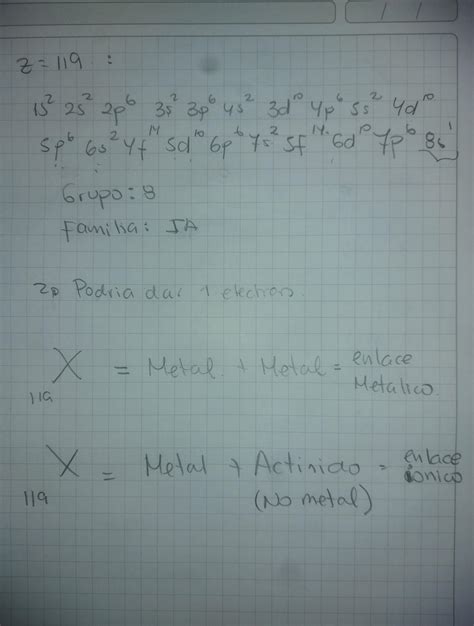 Z = 119 :
1s² 2s² 2p⁶ 3s² 3p⁶ 4s² 3d¹⁰ 4p⁶ 5s² 4d¹⁰
5p⁶ 6s² 4f¹⁴ 5d¹⁰ 6p⁶ 7s² 5f¹⁴ 6d¹⁰ 7p⁶ 8s¹
Grupo: 8
Familia: IA
2. Podria dar 1 electron
₁₁₉X = Metal + Metal = enlace
Metalico.
₁₁₉X = Metal + Actinido = enlace
(No metal) ionico